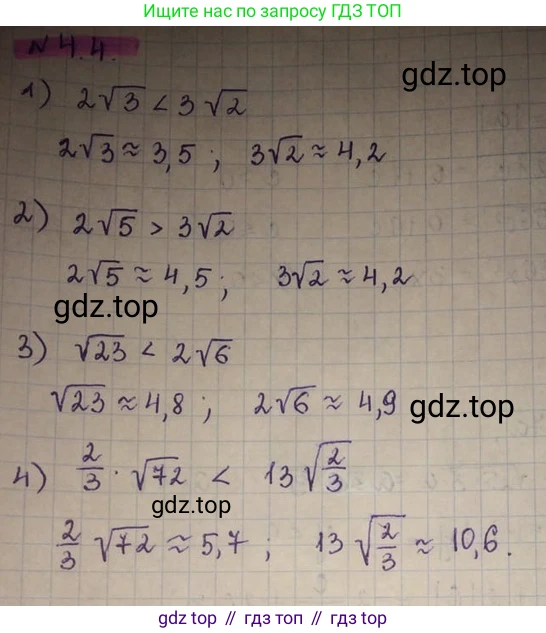 Ищите нас по запросу ГДЗ ТОП
N 4.4.
gdz.top
1) 2√3 < 3√2
2√3 ≈ 3,5 ; 3√2 ≈ 4,2
2) 2√5 > 3√2
2√5 ≈ 4,5 ; 3√2 ≈ 4,2
gdz.top
3) √23 < 2√6
√23 ≈ 4,8 ; 2√6 ≈ 4,9
gdz.top
4) 2/3 · √72 < 13√(2/3)
gdz.top
2/3 √72 ≈ 5,7 ; 13√(2/3) ≈ 10,6.
gdz.top // гдз топ // гдз.топ